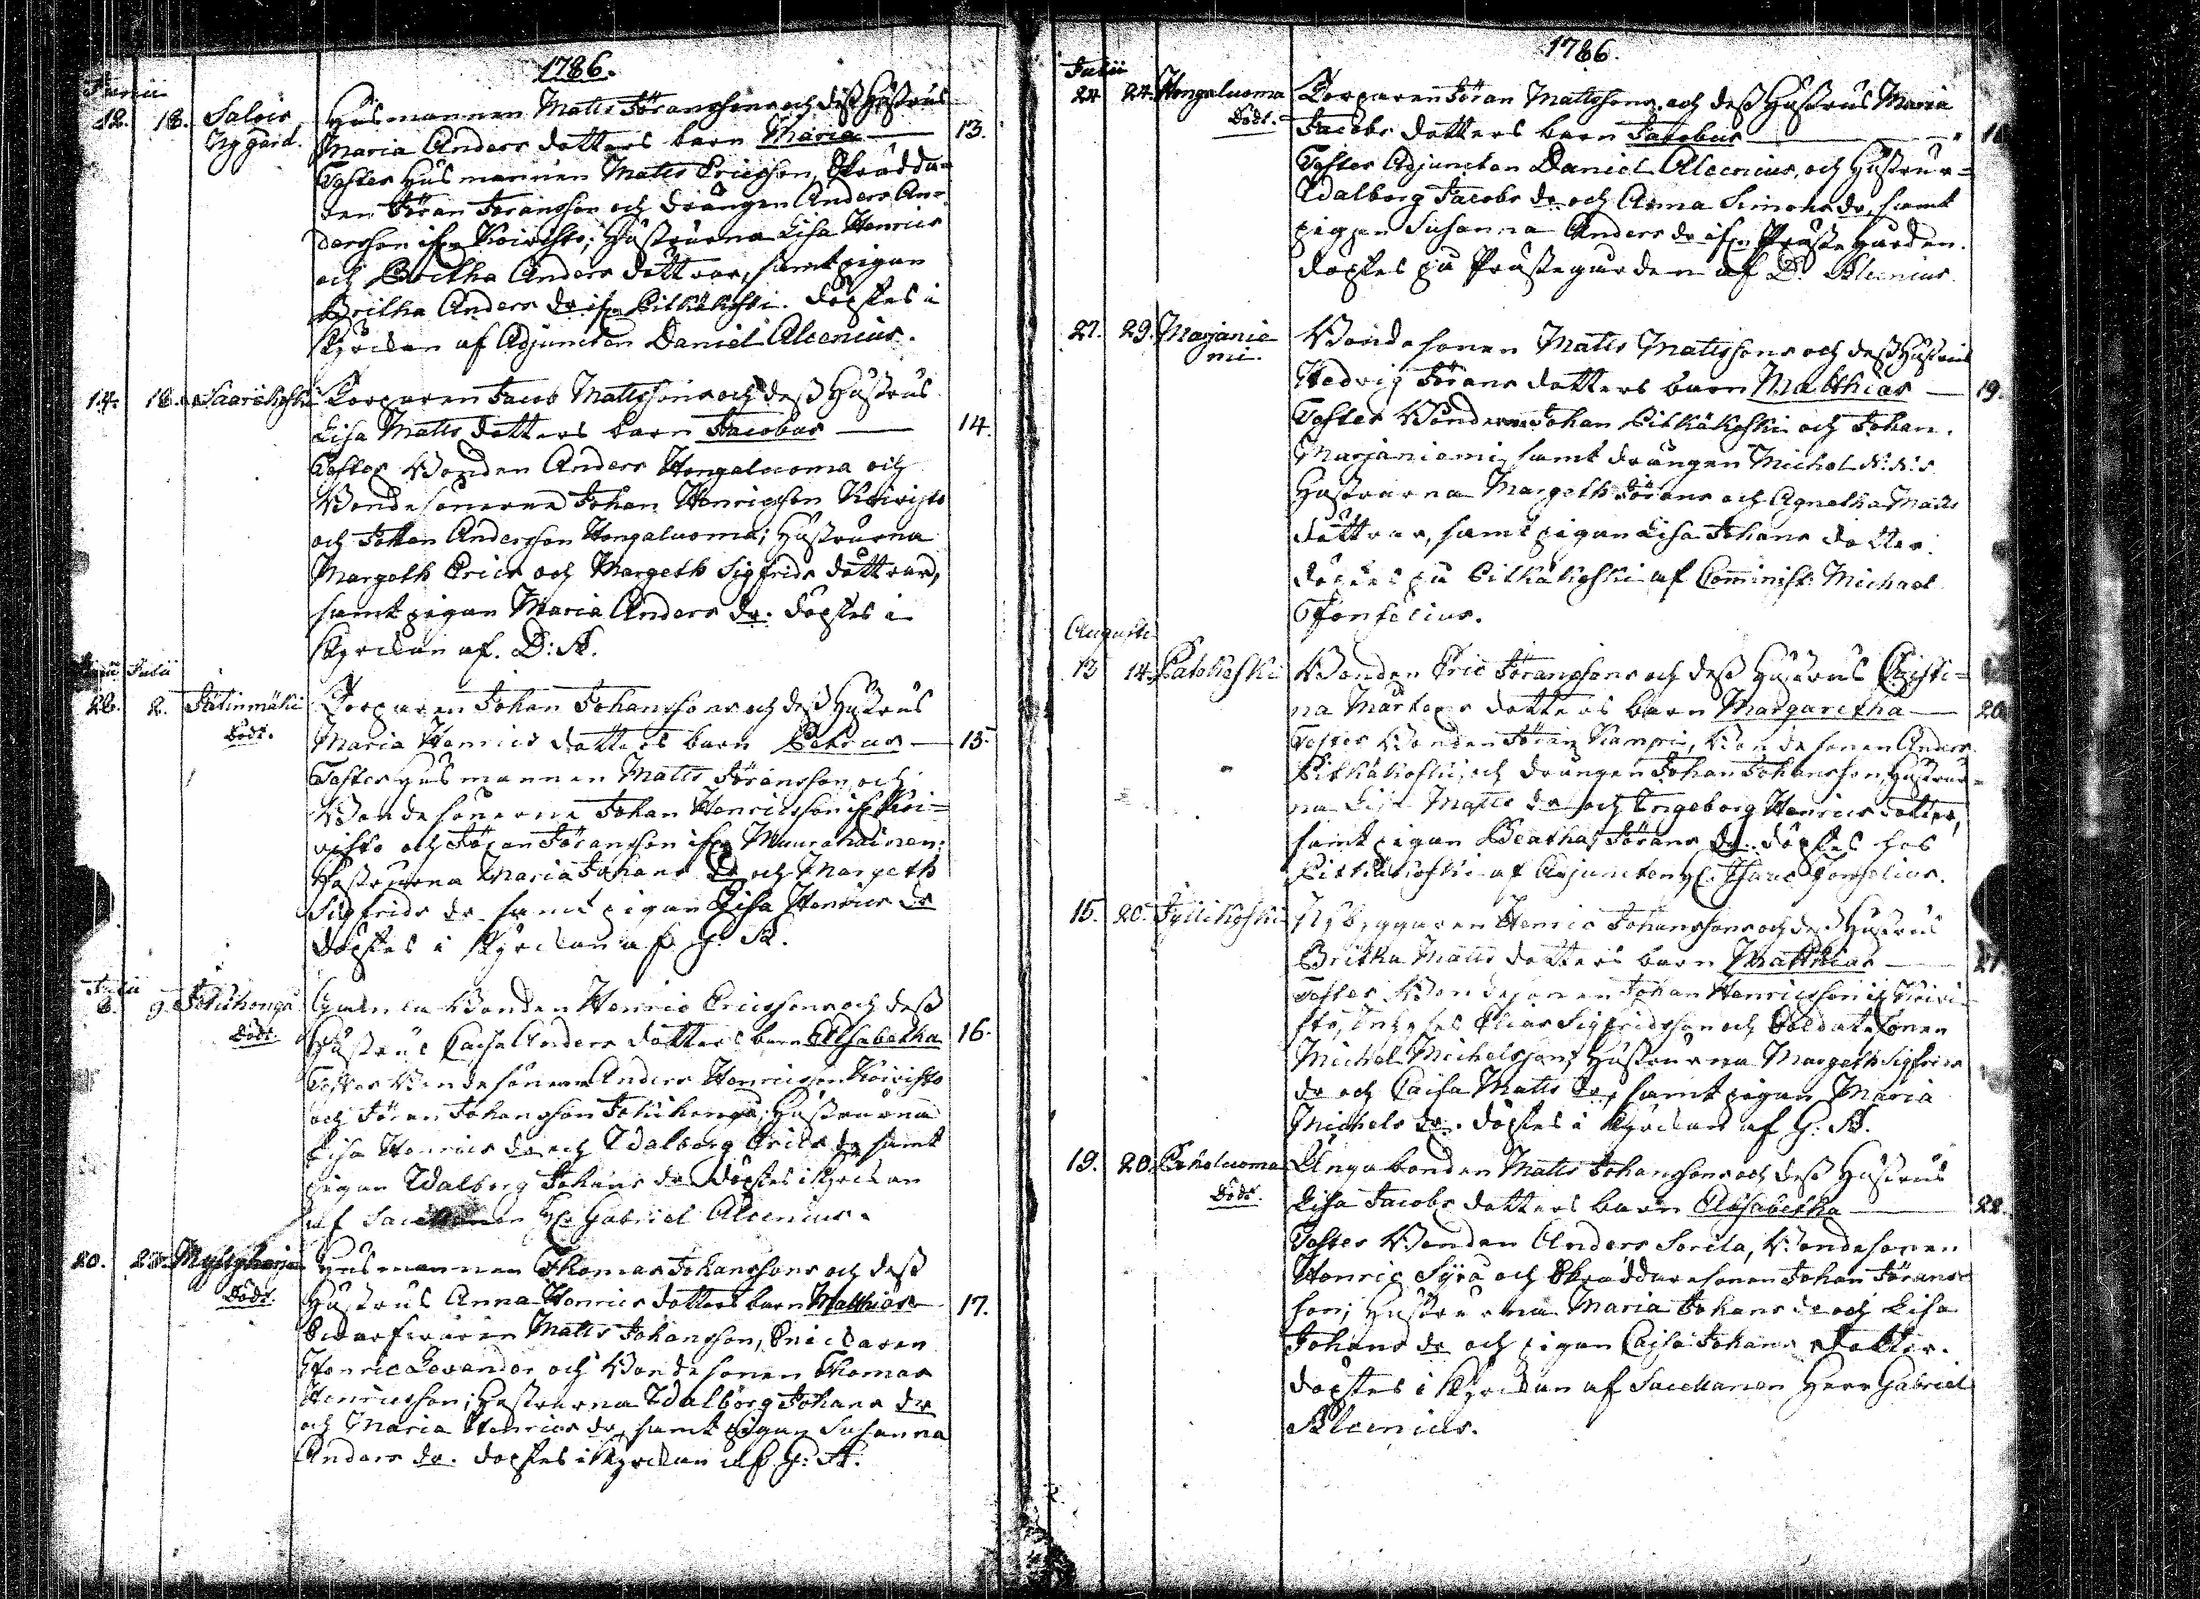 1786.
Junii
12. 18. Salois Nygård. Husmannen Matts Jöranssons och dess Hustrus
Maria Anders dotters barn Maria — 13.
Testes Husmannen Matts Ericsson, Skrädda-
ren Jöran Jöransson och drängen Anders An-
dersson ifrn Koivisto; Hustrurna Lisa Henrics
och Britha Anders döttrar, samt pigan
Britha Anders dr ifrn Pitkäkoski. döptes i
Kyrckan af Adjuncten Daniel Alcenius.
14. 18. Saarikoski Torparen Jacob Mattssons och dess Hustrus
Lisa Matts dotters barn Jacobus — 14.
Testes Bonden Anders Hongaluoma och
Bondesönerne Johan Henricsson Koivisto
och Johan Andersson Hongaluoma; Hustrurna
Margeth Erics och Margeth Sigfrids döttrar,
samt pigan Maria Anders dr. döptes i
Kyrckan af. D: A.
Junii Julii
26. 2. Jätinmäki Torparen Johan Johanssons och dess Hustrus
Södr. Maria Henrics dotters barn Petrus — 15.
Testes Husmannen Matts Jöransson och
Bondesönerne Johan Henricsson ifrn Koi-
visto och Jöran Jöransson ifrn Muurahainen;
Hustrurna Maria Johans dr och Margeth
Sigfrids dr samt pigan Lisa Henrics dr
döptes i Kyrckan af G. A.
Julii
6. 9. Jouhonga Gamla Bonden Henric Ericssons och dess
Södr. Hustrus Caisa Anders dotters barn Elisabetha 16.
Testes Bondesönerne Anders Henricsson Koivisto
och Jöran Johansson Jouhonga; Hustrurna
Lisa Henrics dr och Walborg Erics dr samt
pigan Walborg Johans dr döptes i Kyrckan
af Sacellanen Hr. Gabriel Alcenius.
20. 23. Myllyharju Husmannen Thomas Johanssons och dess
Södr. Hustrus Anna Henrics dotters barn Matthias — 17.
Matts Johansson, Snickaren
Henric Levander och Bondesonen Thomas
Henricsson; Hustrurna Walborg Johans dr
och Maria Henrics dr, samt pigan Susanna
Anders dr. döptes i Kyrckan af G. A.
1786.
Julii
24 24. Hongaluoma Torparen Jöran Mattssons och dess Hustrus Maria
Södr. Jacobs dotters barn Jacobus — 18
Testes Adjuncten Daniel Alcenius, och Hustrur-
Walborg Jacobs dr och Anna Simons dr, samt
pigan Susanna Anders dr ifrn Prästegården.
döptes på Prästegården af D. Alcenius.
27. 29. Marjanie
mi. Bondesonen Matts Mattssons och dess Hustrus
Hedvig Jörans dotters barn Matthias — 19.
Testes Bönderne Johan Pitkäkoski och Johan
Marjaniemi, samt drängen Michel
Hustrurna Margeth Jörans och Agnetha Matts
döttrar, samt pigan Lisa Johans dotter.
döptes på Pitkäkoski af Comminist: Michael
Tonselius.
Augusti
13 14. Latokoski Bonden Eric Jöranssons och dess Hustrus Christi-
na Mårtens dotters barn Margaretha — 20
Testes Bonden Jöran Kamppi, Bondesonen Anders
Pitkäkoski, och drängen Johan Johansson, Hustrur-
na Lisa Matts dr och Ingeborg Henrics dotter,
samt pigan Beatha Jörans dr. döptes hos
Pitkäkoski af Adjuncten Hr. Isaac Tonselius.
15. 20. Jyllikoski Nybyggaren Henric Johanssons och dess Hustrus
Britha Matts dotters barn Matthias — 21.
Testes Bondesonen Johan Henricsson ifrn Koivi-
sto, Inhyses Elias Sigfridsson och Soldatsonen
Michel Michelsson; Hustrurna Margeth Sigfrids
dr och Caisa Matts dr, samt pigan Maria
Michels dr. döptes i Kyrckan af G. A.
19. 20. Peholuoma Unga bonden Matts Johanssons och dess Hustrus
Södr. Lisa Jacobs dotters barn Elisabetha — 22.
Testes Bonden Anders Sorila, Bondesonen
Henric Syrä och Skräddaresonen Johan Jörans-
son; Hustrurna Maria Johans dr och Lisa
Johans dr och pigan Cajsa Johans dotter.
döptes i Kyrckan af Sacellanen Herr Gabriel
Alcenius.